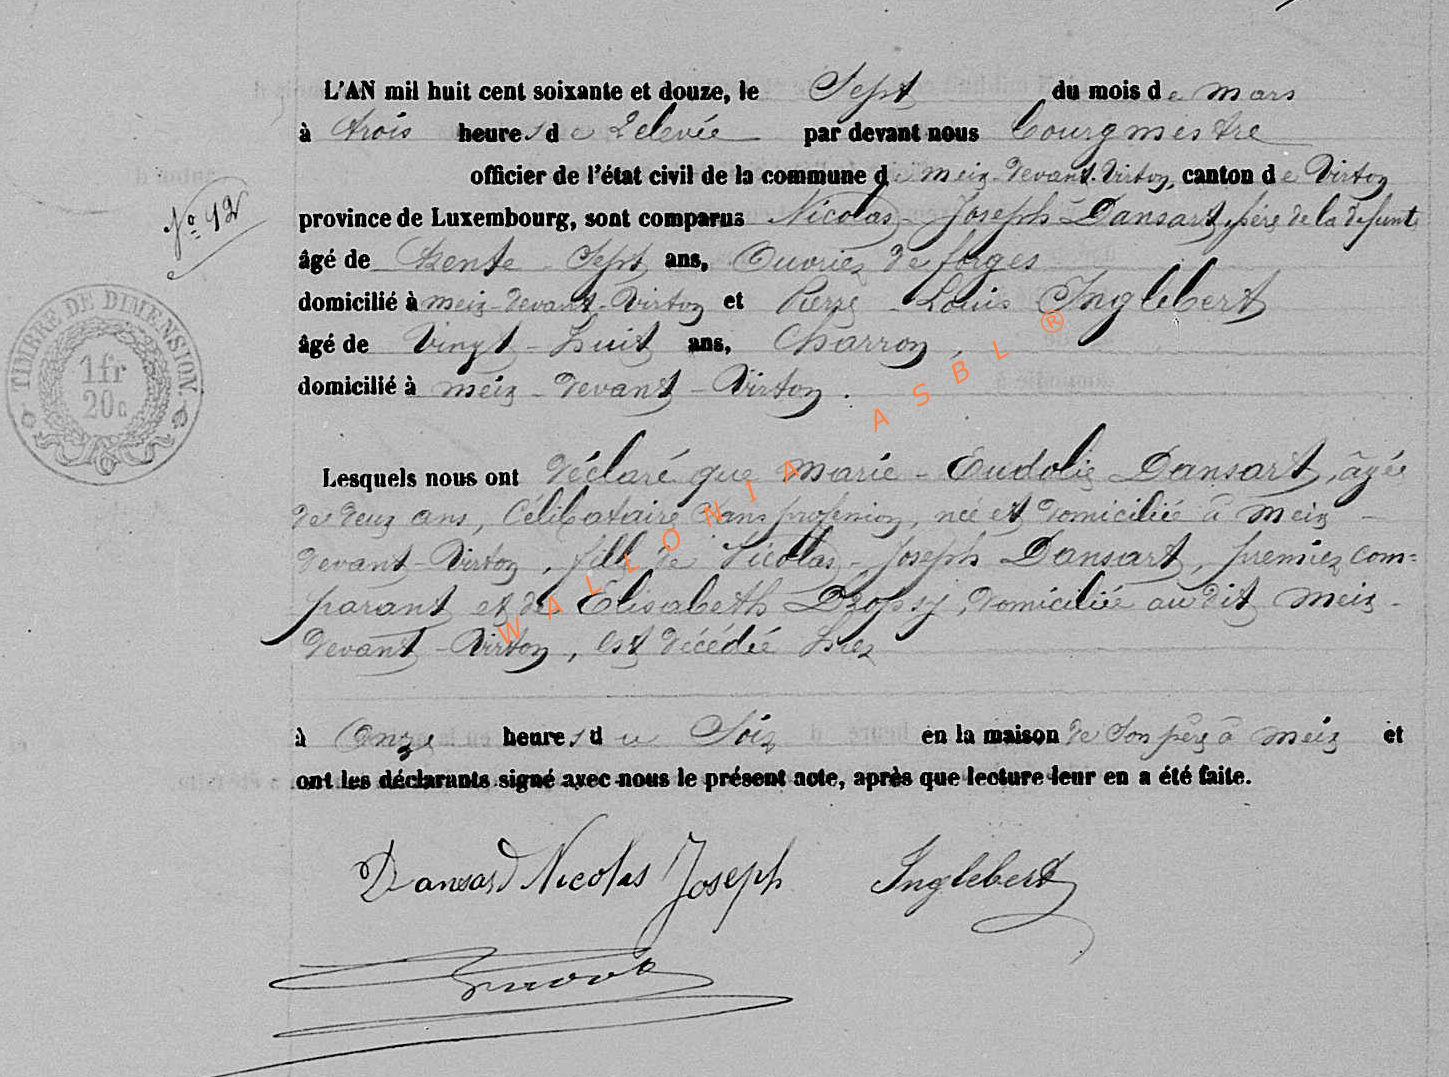 L'AN mil huit cent soixante et douze, le Sept du mois de mars
à trois heures de relevée par devant nous bourgmestre
officier de l'état civil de la commune de meix-devant-Virton, canton de Virton
Nº 12
province de Luxembourg, sont comparus Nicolas-Joseph Dansart, père de la defunte
âgé de trente-Sept ans, Ouvrier de forges
domicilié à meix-devant-Virton et Pierre-Louis Inglebert
âgé de Vingt-huit ans, Charron,
domicilié à meix-devant-Virton.
TIMBRE DE DIMENSION.
1fr
20c
Lesquels nous ont déclaré que marie-Eudolie Dansart, âgée
de deux ans, Célibataire Sans profession, née et domiciliée à meix-
devant-Virton, fille de Nicolas-Joseph Dansart, premier com=
parant et de Elisabeth Dropsy, domiciliée au dit meix-
devant-Virton, est décédée hier
à Onze heures du Soir en la maison de Son père à meix et
ont les déclarants signé avec nous le présent acte, après que lecture leur en a été faite.
Dansard Nicolas Joseph Inglebert
WALLONIA ASBL ®